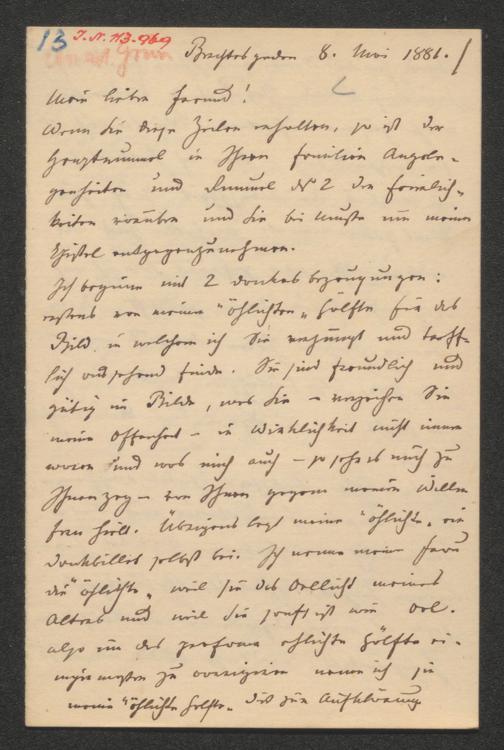 13 J. N. 113.969
Berchtesgaden 8. Mai 1881.
Mein lieber Freund!
Wenn Sie diese Zeilen erhalten, so ist der
Haupttrummel in Ihren Familien Angele-
genheiten und Rummel № 2 die Feierlich-
keiten vorüber und Sie bei Muße um meine
Epistel entgegenzunehmen.
Ich beginne mit 2 Danksbezeugungen:
erstens von meiner "öhlichten" Hälfte für das
Bild, in welchem ich Sie verjüngt und treff-
lich aussehend finde. Sie sind freundlich und
gütig im Bilde, was Sie – verzeihen Sie
meine Offenheit – in Wirklichkeit nicht immer
waren und was mich auch – so sehr es mich zu
Ihnen zog – von Ihnen gegen meinen Willen
fern hielt. Übrigens legt meine "öhlichte" ein
Dankbillet selbst bei. Ich nenne meine Frau
die "öhlichte" weil sie das Oellicht meines
Alters und weil sie sanft ist wie Oel.
also um das
zu nenne ich sie
meine "öhlichte Hälfte". Dieß zur Aufklärung